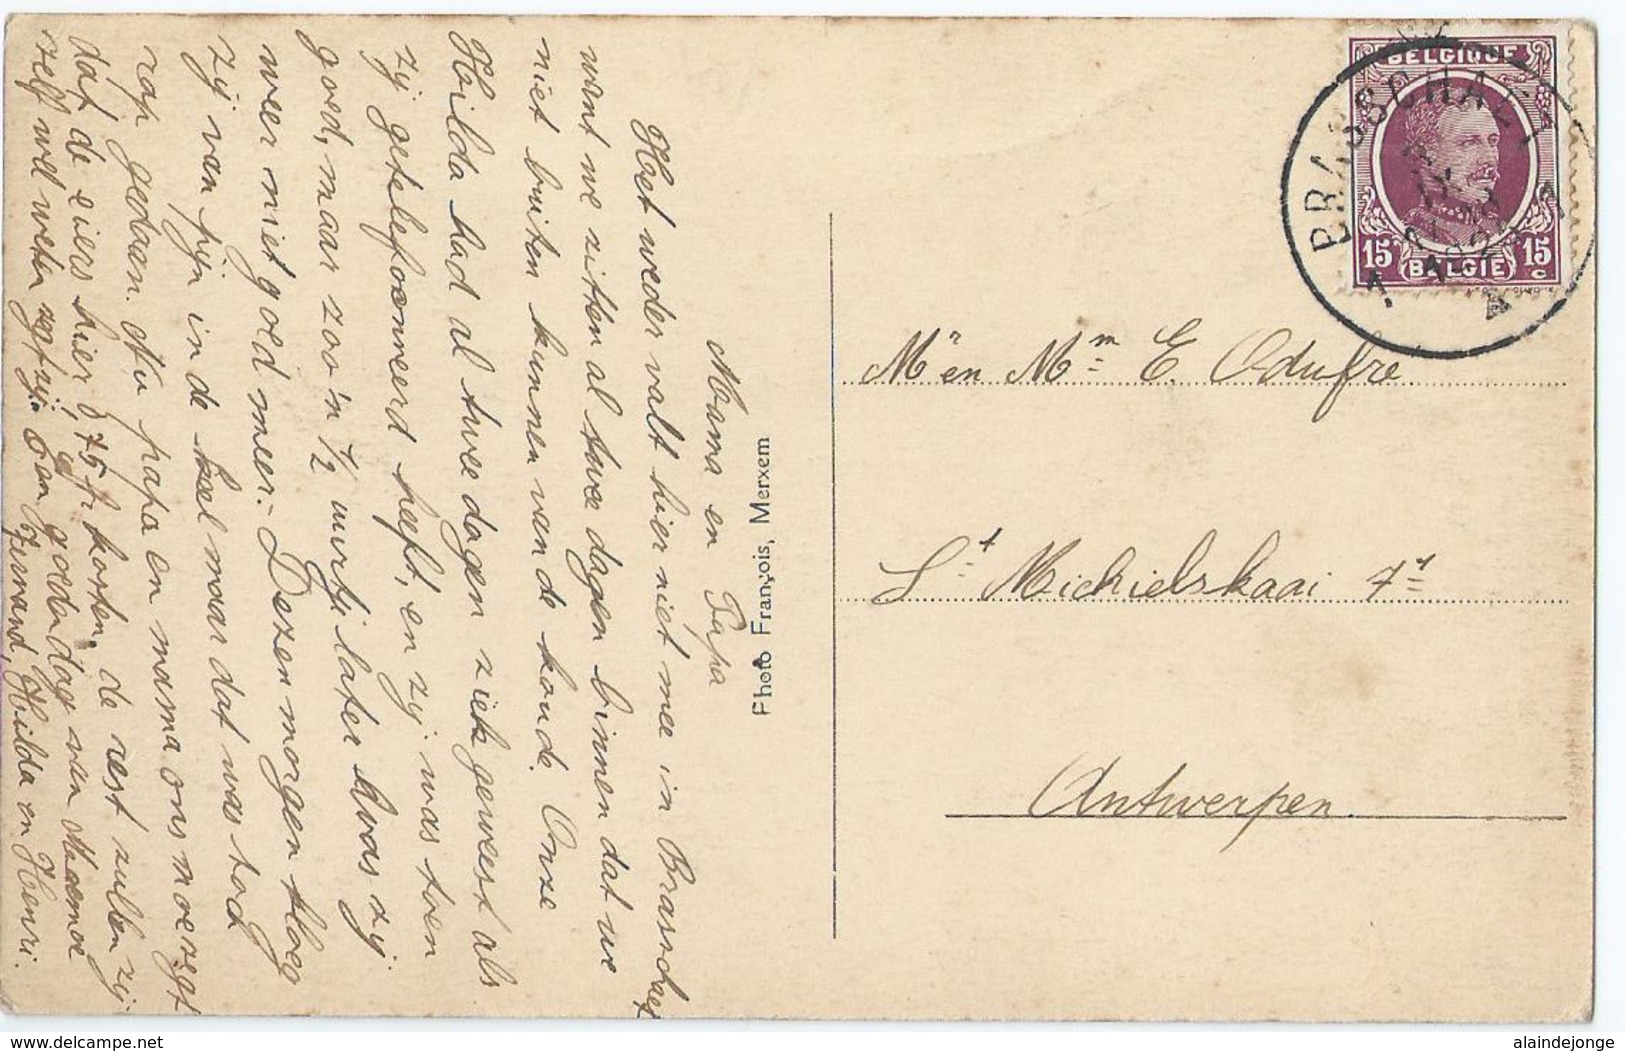 Mama en Papa
Het weder valt hier niet mee in Brasschaet
want we zitten al twee dagen binnen dat we
niet buiten kunnen van de koude. Onze
Hilda had al twee dagen ziek geweest als
zij getelefoonneerd heeft, en zij was toen
goed, maar zoo 'n 1/2 uurtje later was zij
weer niet goed meer. Dezen morgen kloeg
zij van pijn in de keel maar dat was toch
rap gedaan. Nu papa en mama ons moe zegt
dat de eiers hier 0,75 fr kosten, de rest zullen zij
zelf wel weten zegt zij. Een goeden dag van Mademoe
Fernand, Hilda en Henri.
Photo François, Merxem
BELGIQUE
15 15
c
BELGIË
BRASSCHAET
1
Mr en Mm E. Odufré
St Michielskaai 71
Antwerpen
alaindejonge
delcampe.net